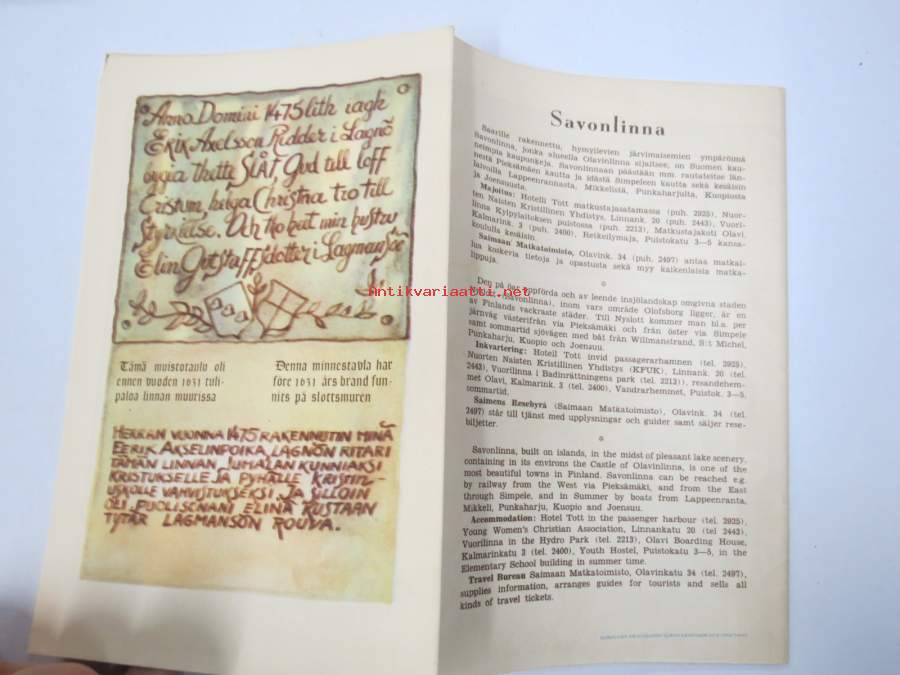 Anno Domini 1475 lith iagh
ERIK Axelsson Ridder i Lagnö
bygia thette SLÅT, Gud till loff
Cristum, helga Christna tro till
Styrkelse. Och tho heit min hustru
Elin Götstaffsdotter i Lagmansöe
Tämä muistotaulu oli
ennen vuoden 1631 tuli-
paloa linnan muurissa
Denna minnestavla har
före 1631 års brand fun-
nits på slottsmuren
HERRAN VUONNA 1475 RAKENNUTIN MINÄ
EERIK AKSELINPOIKA, LAGNÖN RITARI
TÄMÄN LINNAN JUMALAN KUNNIAKSI
KRISTUKSELLE JA PYHÄLLE KRISTIN-
USKOLLE VAHVISTUKSEKSI. JA SILLOIN
OLI PUOLISONANI ELINA KUSTAAN
TYTÄR LAGMANSÖN ROUVA.
Antikvariaatti.net
Savonlinna
Saarille rakennettu, hymyilevien järvimaisemien ympäröimä
Savonlinna, jonka alueella Olavinlinna sijaitsee, on Suomen kau-
neimpia kaupunkeja. Savonlinnaan päästään mm. rautateitse län-
nestä Pieksämäen kautta ja idästä Simpeleen kautta sekä kesäisin
laivoilla Lappeenrannasta, Mikkelistä, Punkaharjulta, Kuopiosta
ja Joensuusta.
Majoitus: Hotelli Tott matkustajasatamassa (puh. 2925), Nuor-
ten Naisten Kristillinen Yhdistys, Linnank. 20 (puh. 2443), Vuori-
linna Kylpylaitoksen puistossa (puh. 2213), Matkustajakoti Olavi,
Kalmarink. 3 (puh. 2400), Retkeilymaja, Puistokatu 3—5 kansa-
koululla kesäisin.
Saimaan Matkatoimisto, Olavink. 34 (puh. 2497) antaa matkai-
lua koskevia tietoja ja opastusta sekä myy kaikenlaisia matka-
lippuja.
Den på öar uppförda och av leende insjölandskap omgivna staden
(Savonlinna), inom vars område Olofsborg ligger, är en
av Finlands vackraste städer. Till Nyslott kommer man bl.a. per
järnväg västerifrån via Pieksämäki och från öster via Simpele
samt sommartid sjövägen med båt från Willmanstrand, S:t Michel,
Punkaharju, Kuopio och Joensuu.
Inkvartering: Hotell Tott invid passagerarhamnen (tel. 2925),
Nuorten Naisten Kristillinen Yhdistys (KFUK), Linnank. 20 (tel.
2443), Vuorilinna i Badinrättningens park (tel. 2213), resandehem-
met Olavi, Kalmarink. 3 (tel. 2400), Vandrarhemmet, Puistok. 3—5,
sommartid.
Saimens Resebyrå (Saimaan Matkatoimisto), Olavink. 34 (tel.
2497) står till tjänst med upplysningar och guider samt säljer rese-
biljetter.
Savonlinna, built on islands, in the midst of pleasant lake scenery,
containing in its environs the Castle of Olavinlinna, is one of the
most beautiful towns in Finland. Savonlinna can be reached e.g.
by railway from the West via Pieksämäki, and from the East
through Simpele, and in Summer by boats from Lappeenranta,
Mikkeli, Punkaharju, Kuopio and Joensuu.
Accommodation: Hotel Tott in the passenger harbour (tel. 2925),
Young Women's Christian Association, Linnankatu 20 (tel 2443),
Vuorilinna in the Hydro Park (tel. 2213), Olavi Boarding House,
Kalmarinkatu 2 (tel. 2400), Youth Hostel, Puistokatu 3—5, in the
Elementary School building in summer time.
Travel Bureau Saimaan Matkatoimisto, Olavinkatu 34 (tel. 2497),
supplies information, arranges guides for tourists and sells all
kinds of travel tickets.